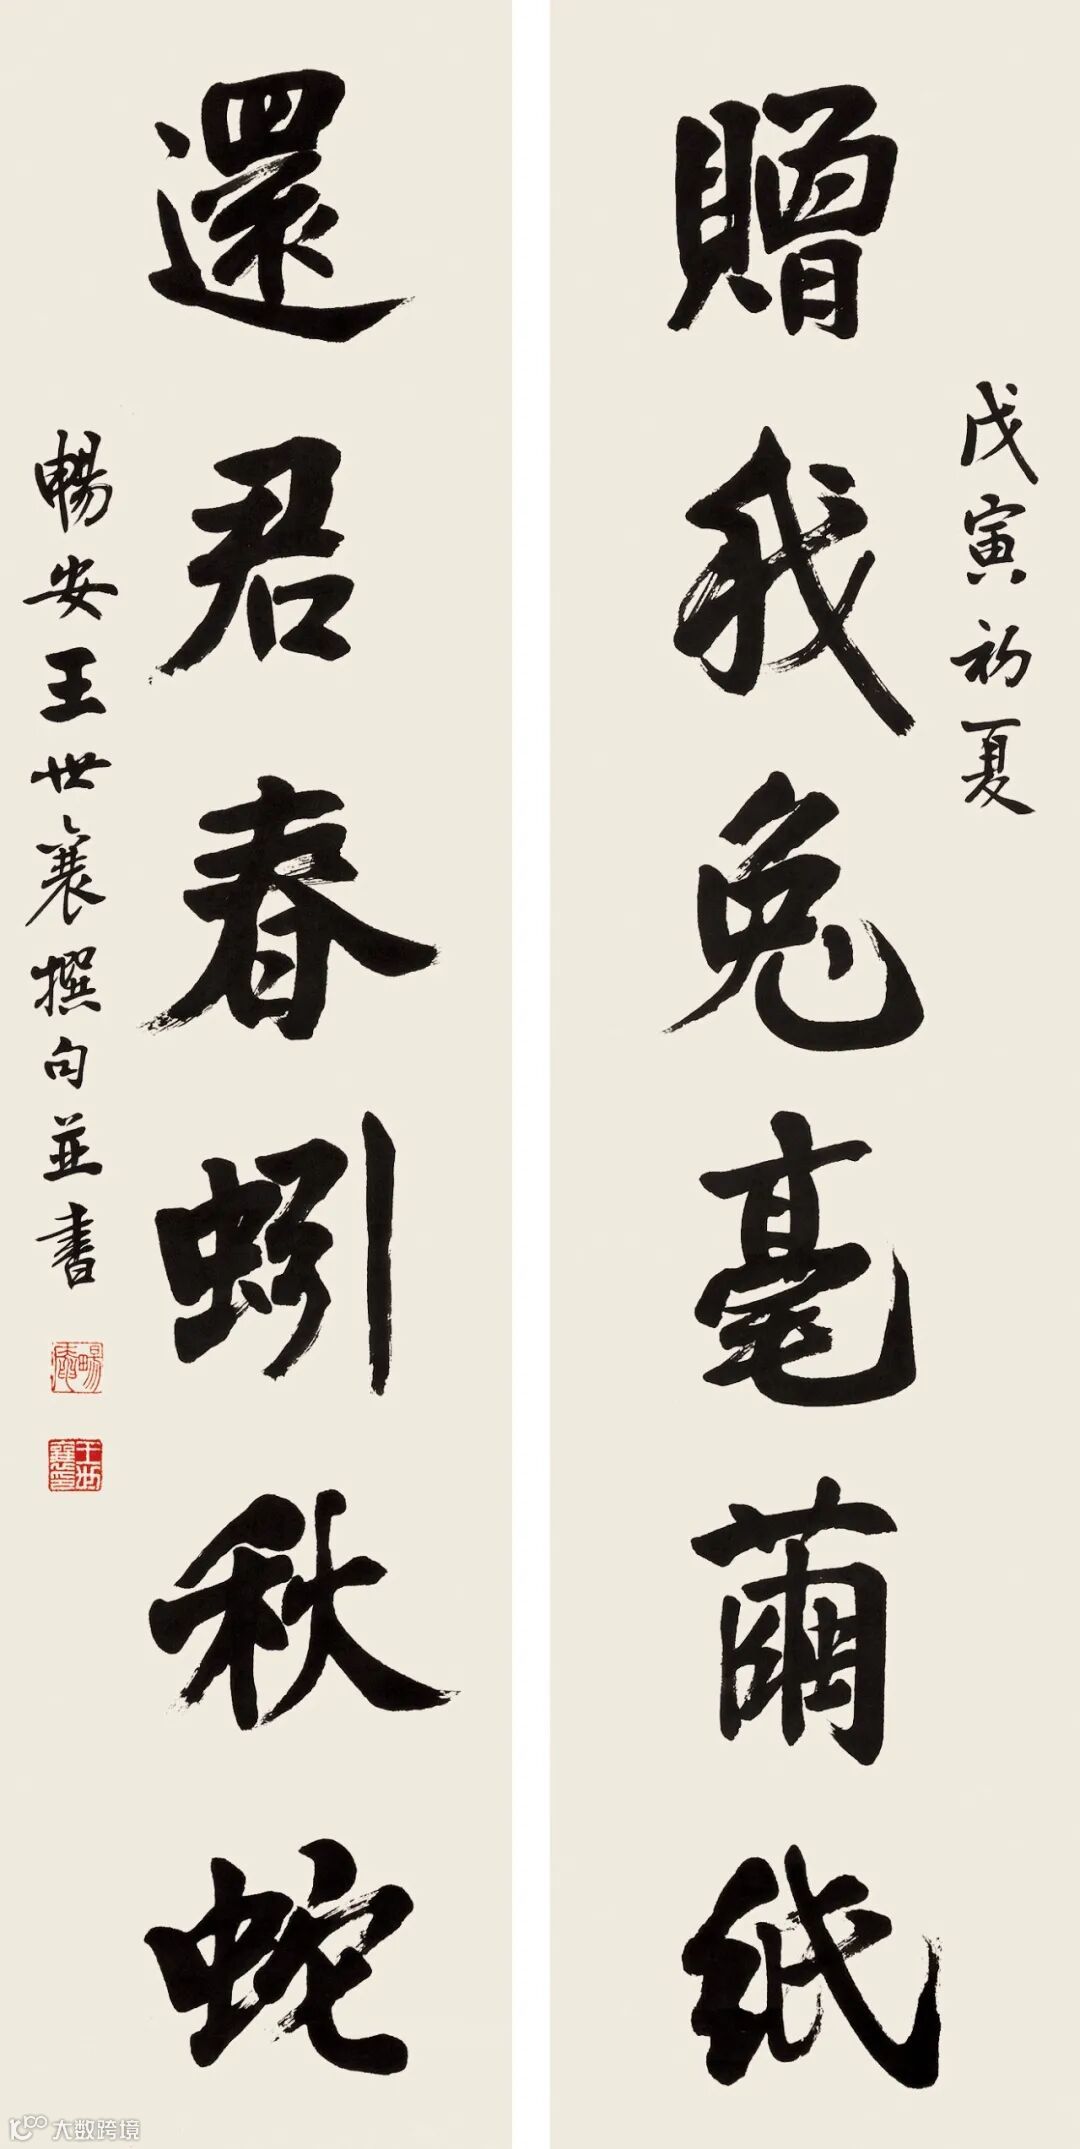 戊寅初夏
贈我兔毫繭紙
還君春蚓秋蛇
暢安王世襄撰句並書
暢安
王世襄印
大数跨境